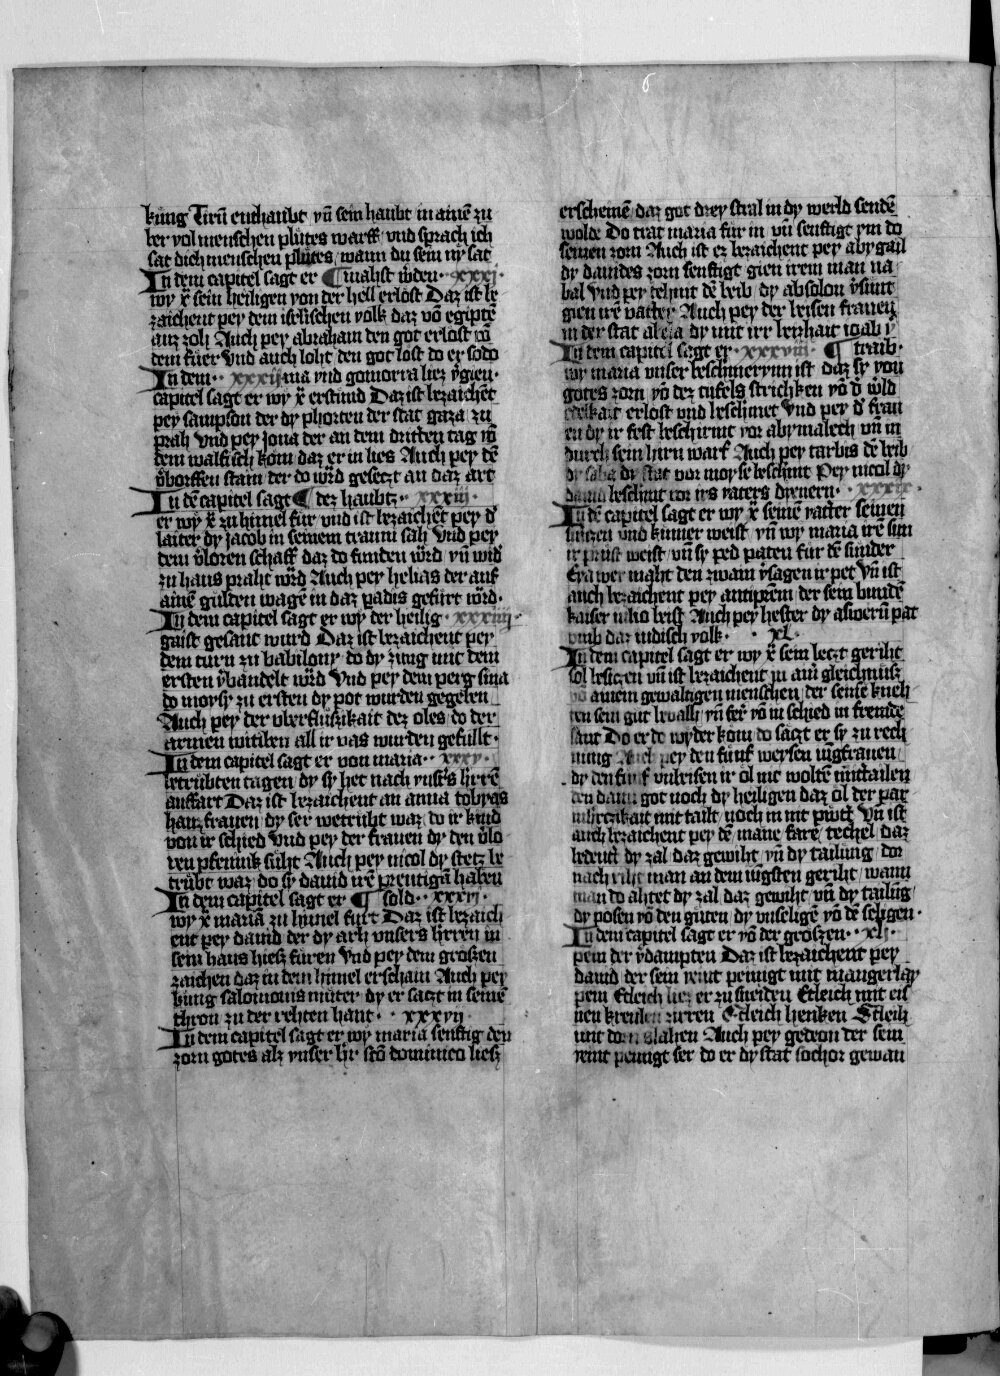 6
kung Tirū enthaubt vn̄ sein haubt in ainē zu
ber vol menschen plutes warff vnd sprach ich
sat dich menschen plutes wann du sein ny sat
In dem capitel sagt er ¶ mahst w̄den · xxxj ·
wy x̄ sein heiligen von der hell erlost Daz ist be
zaichent pey dem iselischen volk daz vō egiptē
auz zoh Auch pey abraham den got erlost vō
dem fuer Vnd auch loht den got lost do er sodo
In dem · xxxij · ma vnd gomorra liez v̄gien ·
capitel sagt er wy x̄ erstund Daz ist bezaichēt
pey sampson der dy phorten der stat gaza zu
prah Vnd pey Jona der an dem dritten tag vō
dem walfisch kom daz er in lies Auch pey dē
v̄borffen stain der do w̄rd gesetzt an daz art
In dē capitel sagt ¶ dez haubtz · xxxiij ·
er wy x̄ zu himel fur vnd ist bezaichēt pey d̄
laiter dy jacob in seinem traum sah Vnd pey
dem v̄loren schaff daz do funden w̄rd vn̄ wid̄
zu haus praht w̄rd Auch pey helias der auf
ainē gulden wagē in daz padis gefurt w̄rd ·
In dem capitel sagt er wy der heilig · xxxiiij ·
gaist gesant wurd Daz ist bezaichent pey
dem turn zu babilony do dy zung mit dem
ersten v̄bandelt w̄rd Vnd pey dem perg sina
do moysy zu ersten dy pot wurden gegeben
Auch pey der vberflussikait dez oles do der
armen witiben all ir vas wurden gefullt ·
In dem capitel sagt er von maria · xxxv ·
betrubten tagen dy sy het nach vnss̄s hrrē
auffart Daz ist bezaichent an anna tobyas
hauzfrauen dy ser betrubt waz do ir kind
von ir schied Vnd pey der frauen dy den v̄lo
ren pfennik suht Auch pey nicol dy stetz be
trubt waz do sy dauid irē preutigā haben
In dem capitel sagt er ¶ sold · xxxvj ·
wy x̄ mariā zu himel furt Daz ist bezaich
ent pey dauid der dy arh vnsers hrren in
sein haus hiesz furen Vnd pey dem groszen
zaichen daz in dem himel erschain Auch pey
kunig salomons muter dy er satzt in seinē
thron zu der rehten hant · xxxvij
In dem capitel sagt er wy maria senftig den
zorn gotes alz vnser hr̄ stō dominico liesz
erscheinē daz got drey stral in dy werld sendē
wolde Do trat maria fur in vn̄ senftigt ym do
seinen zorn Auch ist er bezaichent pey abygail
dy dauides zorn senftigt gien irem man na
bal Vnd pey dē beib dy absolon v̄sunt
gien irē vatter Auch pey der beisen frauen
in der stat abela dy mit irr beizhait ioab v
In dem capitel sagt er · xxxviij · ¶ traib ·
wy maria vnser beschirmerynn ist daz sy von
gotes zorn vō dez tufels strichken vō d̄ w̄ld
itelkait erlost vnd beschirmet Vnd pey d̄ frau
en dy ir fest beschirmt vor abymalech vn̄ in
durch sein hirn warf Auch pey tarbis dē beib
dy saba dy stat vor moyse beschirmt Pey nicol dy
dauid beschirmt vor irs vaters dienern · xxxix ·
In dē capitel sagt er wy x̄ seinē vatter seinen
wunden vnd kumer weist vn̄ wy maria irē sun
ir prust weist vn̄ sy ped paten fur dē sunder
Eya wer maht den zwain v̄sagen ir pet Vn̄ ist
auch bezaichent pey antiprem der sein bundē
kaiser iulio beist Auch pey hester dy aswerū pat
vmb daz iudisch volk · xl ·
In dem capitel sagt er wy x̄ sein letzt geriht
sol besitzen vn̄ ist bezaichent in aim gleichnusz
vō ainem gewaltigen menschen der seinē knech
ten sein gut bevalh vn̄ ferr vō in schied in fremde
lant Do er do wyder kom do satzt er sy zu rech
nung Auch pey den funf weysen iūgfrauen
dy den funf vnbeisen ir ol nit woltē mittailen
den dann got noch dy heiligen daz ol der par
mhertzikait mit tailt noch in nit Vn̄ ist
auch bezaichent pey dē mane fare techel daz
bedeut dy zal daz gewiht vn̄ dy tailung dor
nach riht man an dem iūgsten geriht wann
man do ahtet dy zal daz gewiht vn̄ dy tailūg
dy posen vō den guten dy vnseligē vō dē seligen ·
In dem capitel sagt er vō der groszen · xlj ·
pein der v̄dampten Daz ist bezaichent pey
dauid der sein veint peinigt mit mangerlay
pein Etleich liez er zu sneiden Etleich mit eis
nen kreulen zurren Etleich henken Etleih
mit dorn slahen Auch pey gedeon der sein
veint peinigt ser do er dy stat sochor gewan